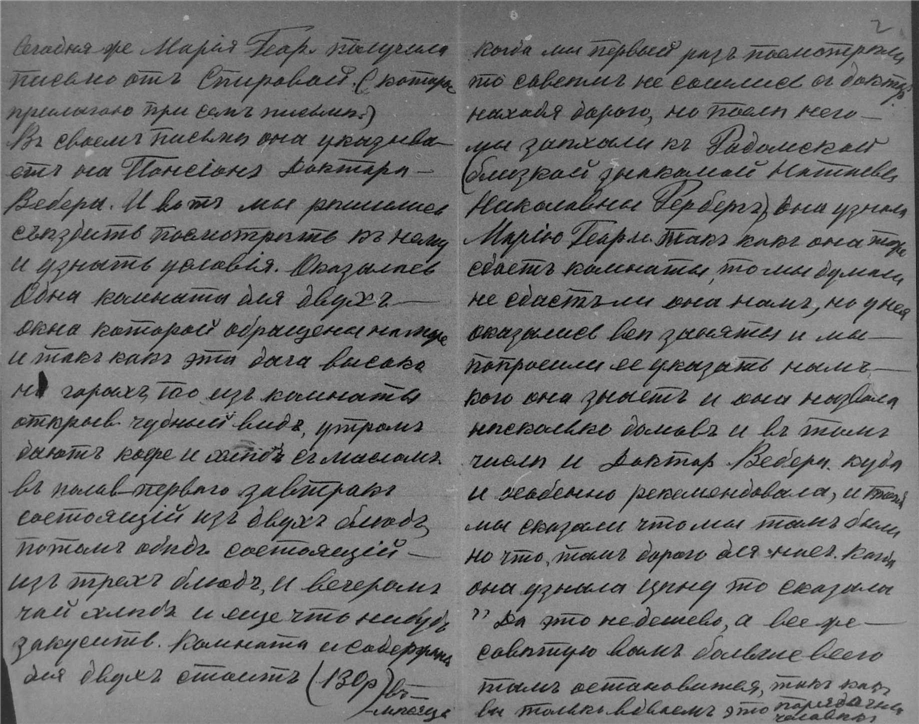 2
Сегодня же Марія Геар. получила
письмо отъ Спировой. (которое
прилагаю при семъ письмѣ.)
Въ своемъ письмѣ она указыва-
етъ на Пансіонъ Доктора —
Вебера. И вотъ мы рѣшились
съѣздить посмотрѣть къ нему
и узнать условія. Оказалась
Одна комната для двухъ —
окна которой обращены на море
и такъ какъ эта дача высоко
на горахъ, то изъ комнаты
открыв. чудный видъ, утромъ
даютъ кофе и хлѣбъ съ масломъ.
въ полов. первого завтракъ
состоящій изъ двухъ блюдъ,
потомъ обѣдъ состоящій —
изъ трехъ блюдъ, и вечеромъ
чай хлѣбъ и еще что нибудь
закусить. Комната и содержань
для двухъ стоитъ (130р) въ —
мѣсяцъ
когда мы первый разъ посмотрѣли
то совсѣмъ не сошлись съ доктор.
находя дорого, но послѣ него —
мы заѣхали къ Радомской
(близкой знакомой Натальи
Николавны Герберъ), Она узнала
Марію Геарг. такъ какъ она тоже
сдаетъ комнаты, то мы думали
не сдастъ ли она намъ, но у нея
оказались всѣ заняты и мы —
попросили ее указать намъ —
кого она знаетъ и она назвала
нѣсколько домовъ и въ томъ
числѣ и Доктор Вебера. куда
и особенно рекомендовала, и тогда
мы сказали что мы тамъ были
но что, тамъ дорого для насъ. Когда
она узнала цѣну то сказала
" Да это не дешево, а все-же —
совѣтую вамъ больше всего
тамъ остановиться, такъ какъ
вы только вдвоемъ это порядочный
человѣкъ